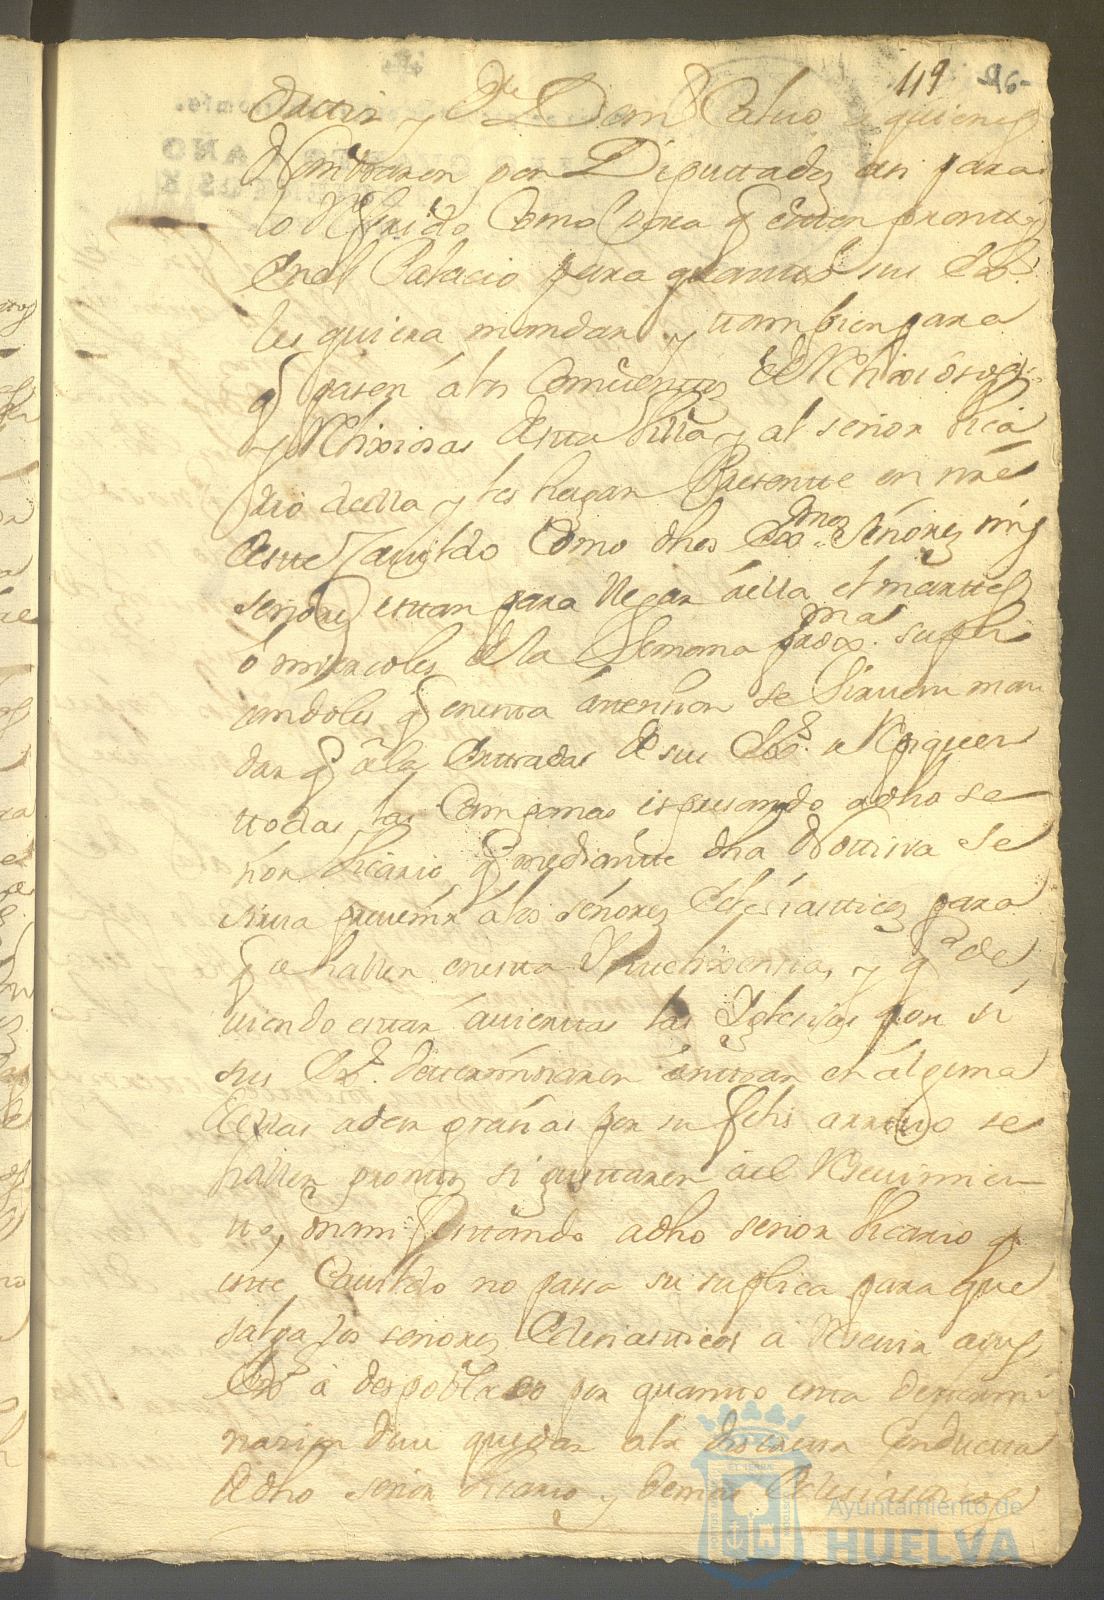 119 96
y Dn Domo Calvo a quienes
Nombraron por Diputados asi para
lo Referido Como para q esten promtos
En el Palacio para quanto sus Exs.
les quiera mandar y tambien para
q pasen â los Comventos de Relixiosos
y Relixiosas desta Villa y al señor Vica
rio de ella y les hagan Presente en nre
deste Cavildo Como dhos Exmos Señores mis
señores estan para llegar â ella el martes
ô miercoles de la Semana proxma. supli
candoles q en esta âtenzion se sirvan man
dar q â la Entrada de sus Exs. se Repiquen
ttodas las Campanas expresando a dho se
ñor Vicario q mediante dha Notizia se
sirva prevenir â los señores Eclesiasticos para
q se hallen en esta Yntelixensia, y q de
viendo estar âviertas las Yglesias por si
sus Exs. determinaren êntrar en âlguna
dellas a dar grasias por su feliz arrivo se
hallen promtos si gustaren âel Resevimien
to, manifestando a dho señor Vicario q
este Cavildo no pasa su suplica para que
salga los señores Eclesiasticos â Resevir a sus
Exs â despoblado por quanto esta determi
nazion deve quedar a la discreta Conducta
de dho señor Vicario y demas Eclesiasticos
Ayuntamiento de
HUELVA